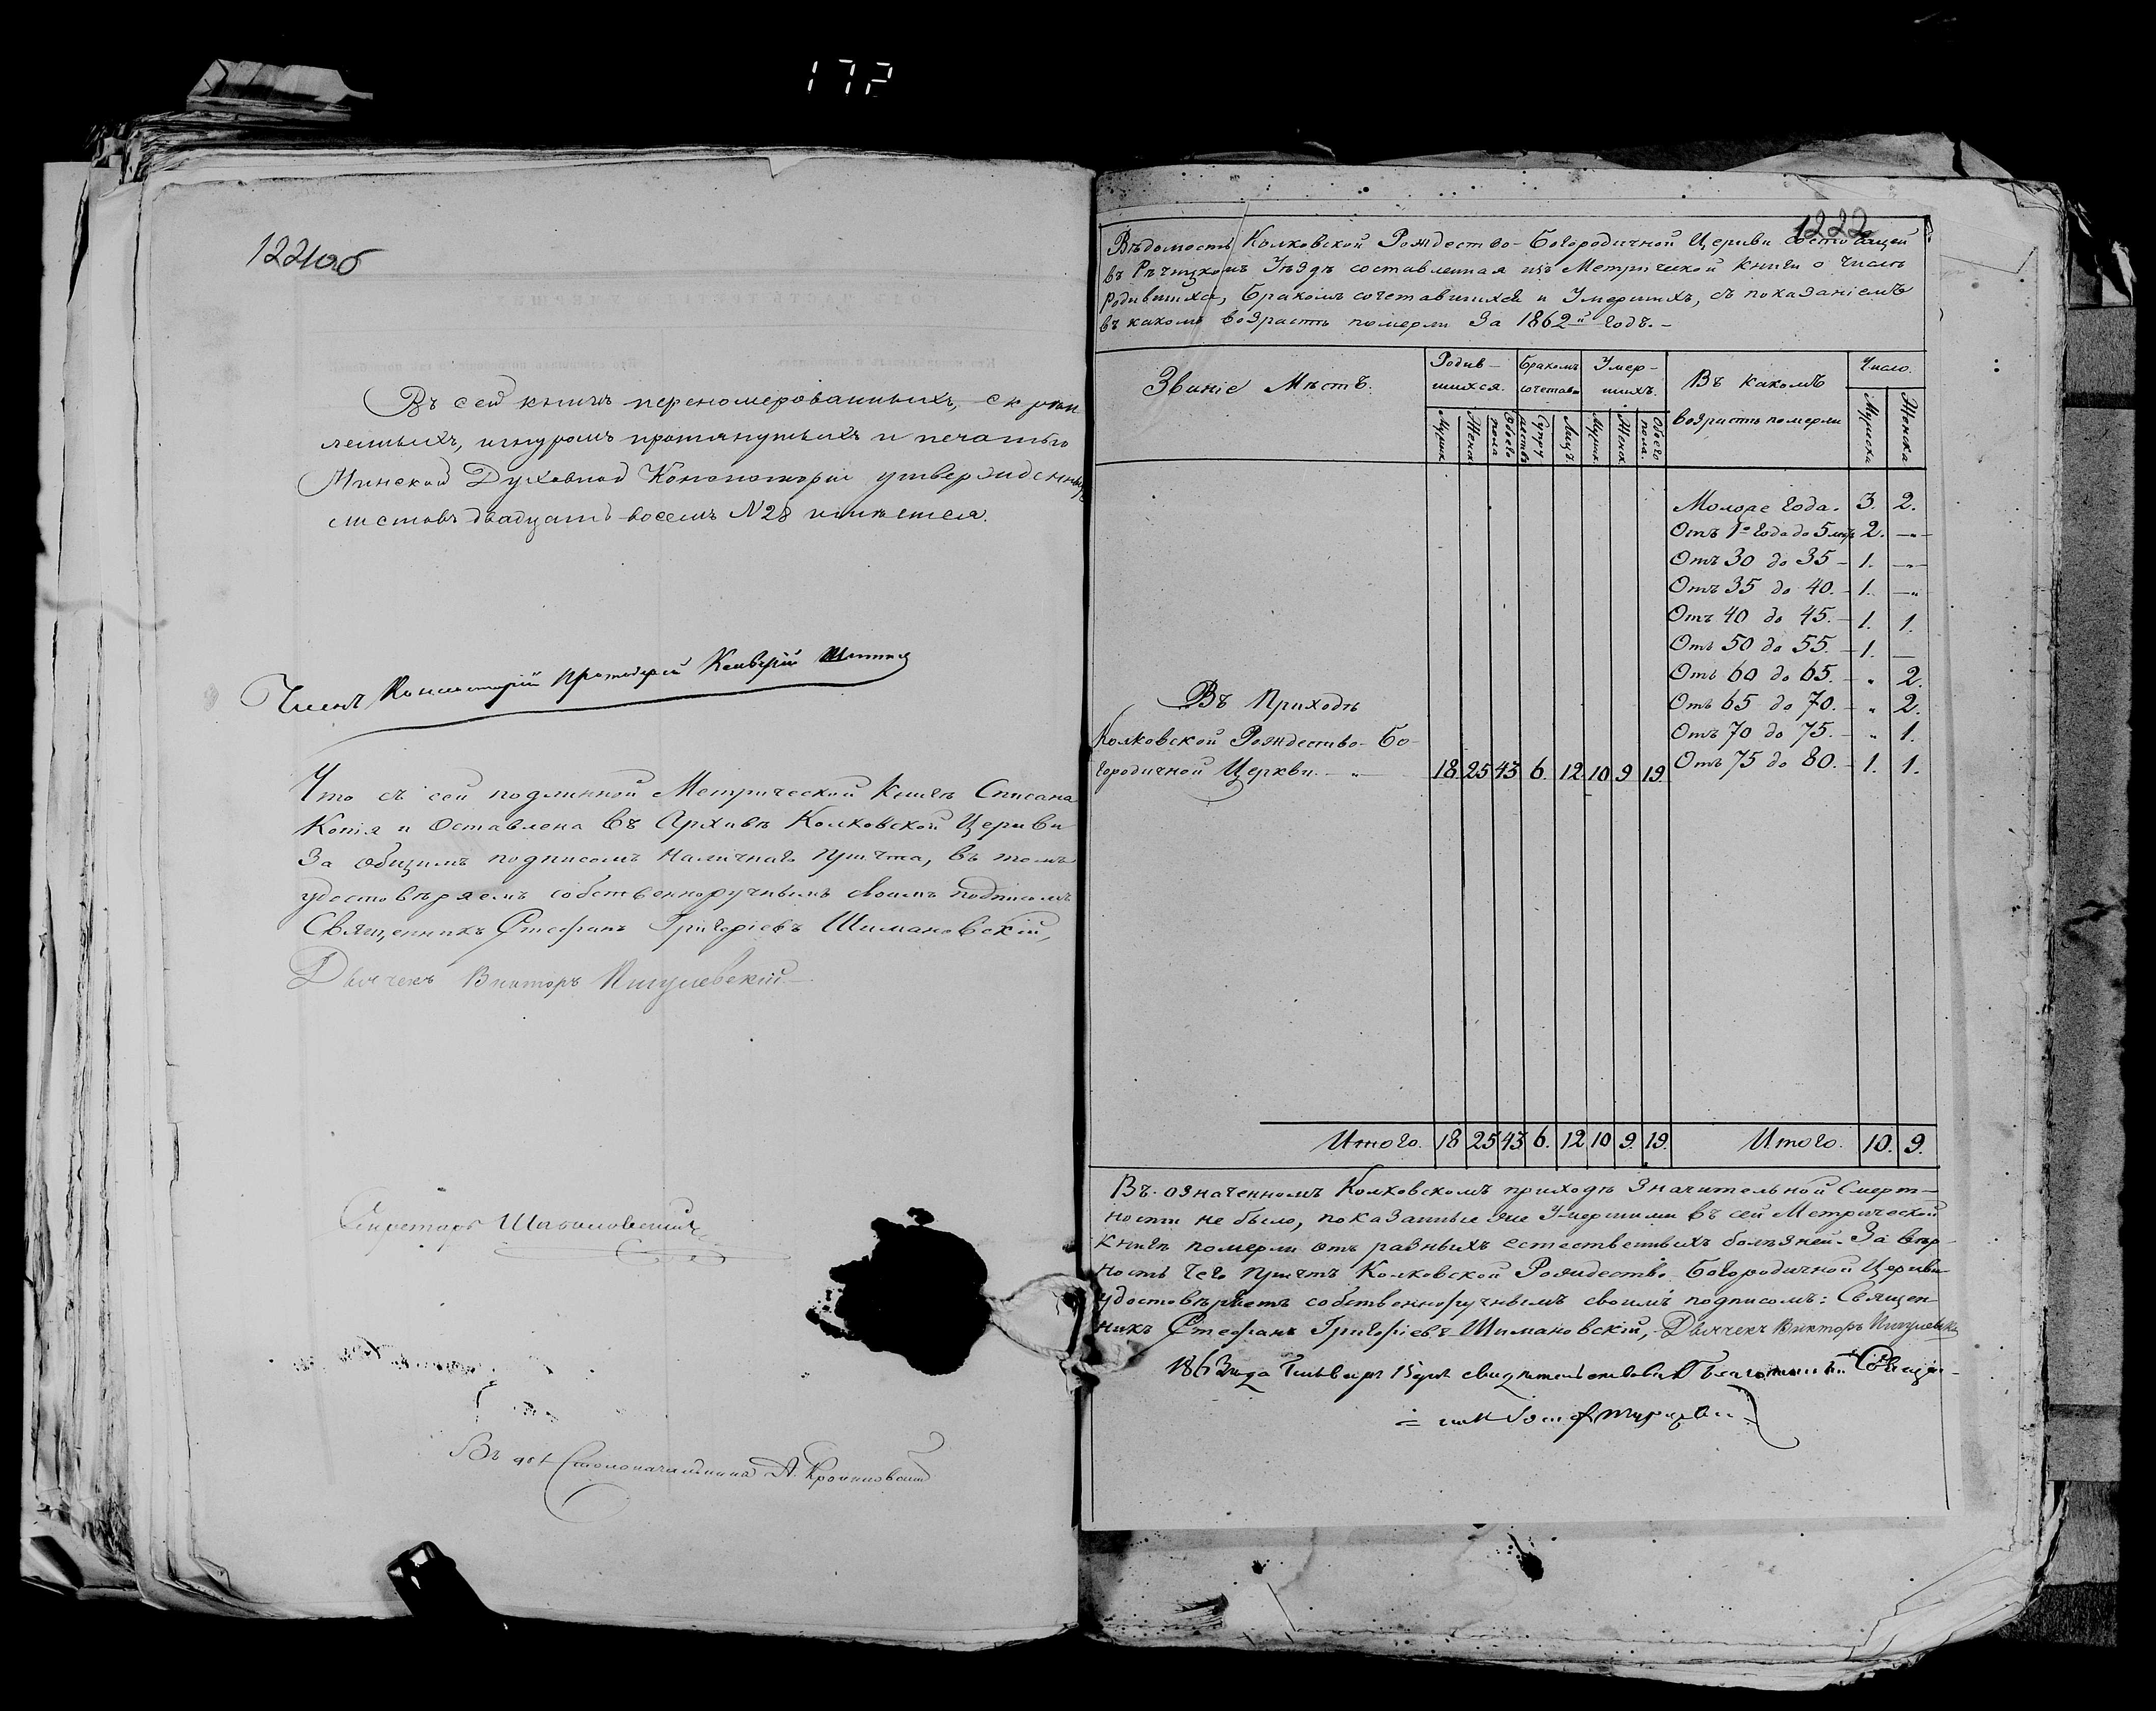 172
1221об
Въ сей книгѣ перенумерованныхъ, скрѣп
ленныхъ, шнуромъ протянутыхъ и печатью
Минской Духовной Консисторіи утвержденныхъ
листовъ двадцать восемь N28 имѣется.
Членъ Консисторіи Протоіерей
Что съ сей подлинной Метрической Книги Списана
Копія и Оставлена въ Архивѣ Колковской Церкви
За общимъ подписомъ наличнаго причта, въ томъ
удостовѣряемъ собственноручнымъ своимъ подписомъ
Священникъ Стефанъ Григоріевъ Шимановскій,
Дьячекъ Викторъ Пигулевскій
Секретарь
Въ дол. Столоначальника А.
1222
Вѣдомость Колковской Рождество-Богородичной Церкви состоящей
въ Рѣчицкомъ Уѣздѣ составленная изъ Метрической книги о числѣ
Родившихся, бракомъ сочетавшихся и Умершихъ, съ показаніемъ
въ какомъ возрастѣ померли за 1862й годъ.
Званіе Мѣстъ.
Родив-
шихся.
Бракомъ
сочетав.
Умер-
шихъ.
Въ какомъ
возрастѣ померли
Число.
Мужск.
Женск.
Обоего
пола
Супру
жествъ
Лицъ.
Мужск.
Женск.
Обоего
пола.
Мужеска
Женска
Моложе года. 3. 2.
Отъ 1го года до 5 лѣтъ 2. —"—
Отъ 30 до 35 — 1. —"—
Отъ 35 до 40. — 1. —"
Отъ 40 до 45. — 1. 1.
Отъ 50 до 55. — 1. —
Отъ 60 до 65. — " 2.
Отъ 65 до 70. — " 2.
Отъ 70 до 75. — " 1.
Отъ 75 до 80. — 1. 1.
Въ Приходѣ
Колковской Рождество-Бо-
городичной Церкви. — " — 18. 25 43 6. 12. 10 9. 19.
Итого. 18 25 43 6. 12 10 9. 19. Итого. 10. 9.
Въ означенномъ Колковскомъ приходѣ Значительной Смерт-
ности не было, показанные же Умершими въ сей Метрической
Книгѣ померли отъ разныхъ естественныхъ болѣзней. За вѣр-
ность чего Причтъ Колковской Рождество-Богородичной Церкви
удостовѣряетъ собственноручнымъ своимъ подписомъ: Священ
никъ Стефанъ Григоріевъ Шимановскій, Дьячекъ Викторъ Пигулевскій
1863 года Генваря 15 дня свидѣтельствовалъ Благочинный Священ-